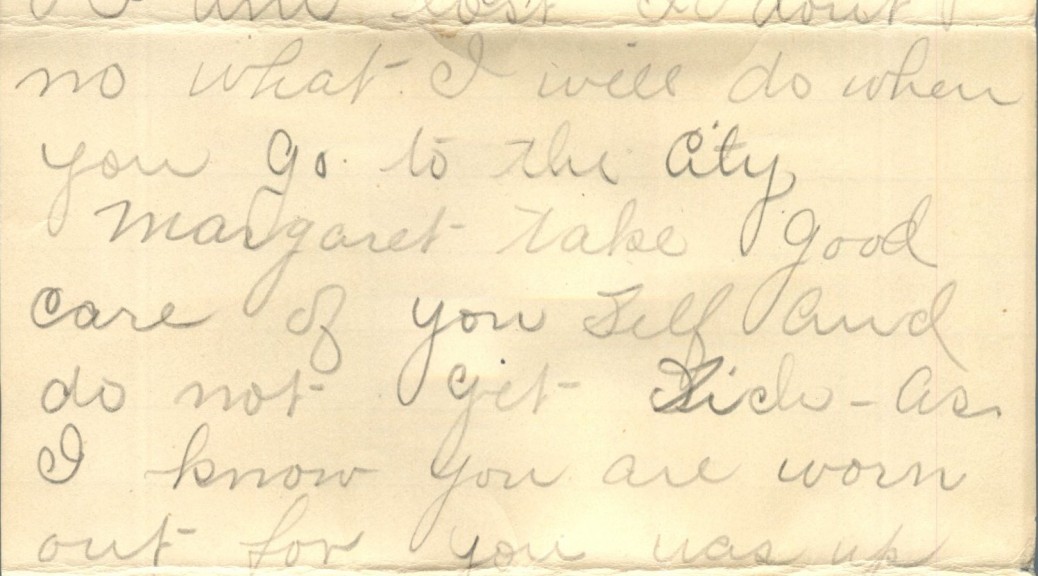 am lost I dont
no what I will do when
you go to the City
Margaret take good
care of you Self and
do not get Sick - as
I know you are worn
out for you was up